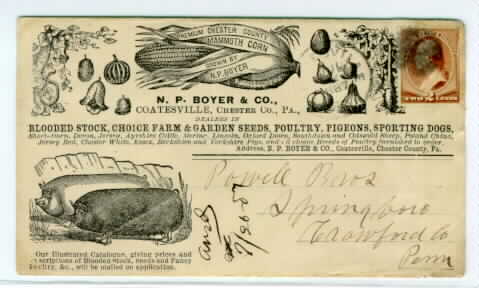 PREMIUM CHESTER COUNTY
MAMMOTH CORN
GROWN BY
N.P. BOYER
N. P. BOYER & CO.,
COATESVILLE, CHESTER CO., PA.,
DEALERS IN
BLOODED STOCK, CHOICE FARM & GARDEN SEEDS, POULTRY, PIGEONS, SPORTING DOGS,
Short-horn, Devon, Jersey, Ayrshire Cattle, Merino, Lincoln, Oxford Down, Southdown and Cotswold Sheep, Poland China,
Jersey Red, Chester White, Essex, Berkshire and Yorkshire Pigs, and all choice Breeds of Poultry furnished to order.
Address, N. P. BOYER & CO., Coatesville, Chester County, Pa.
Powell Bros
Springboro
Crawford Co
Penn
Our Illustrated Catalogue, giving prices and
scriptions of Blooded Stock, Seeds and Fancy
Poultry, &c., will be mailed on application.